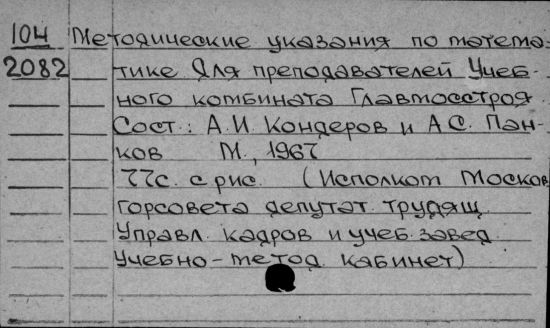 104 Методические указания по матема-
2082 тике для преподавателей Учеб-
ного комбината Главмосстроя
Сост.: А.И. Кондеров и А С. Пан-
ков М., 1967
77с. с рис. (Исполком Москов
горсовета депутат. трудящ.
Управл. кадров и учеб. завед.
Учебно-метод. кабинет)